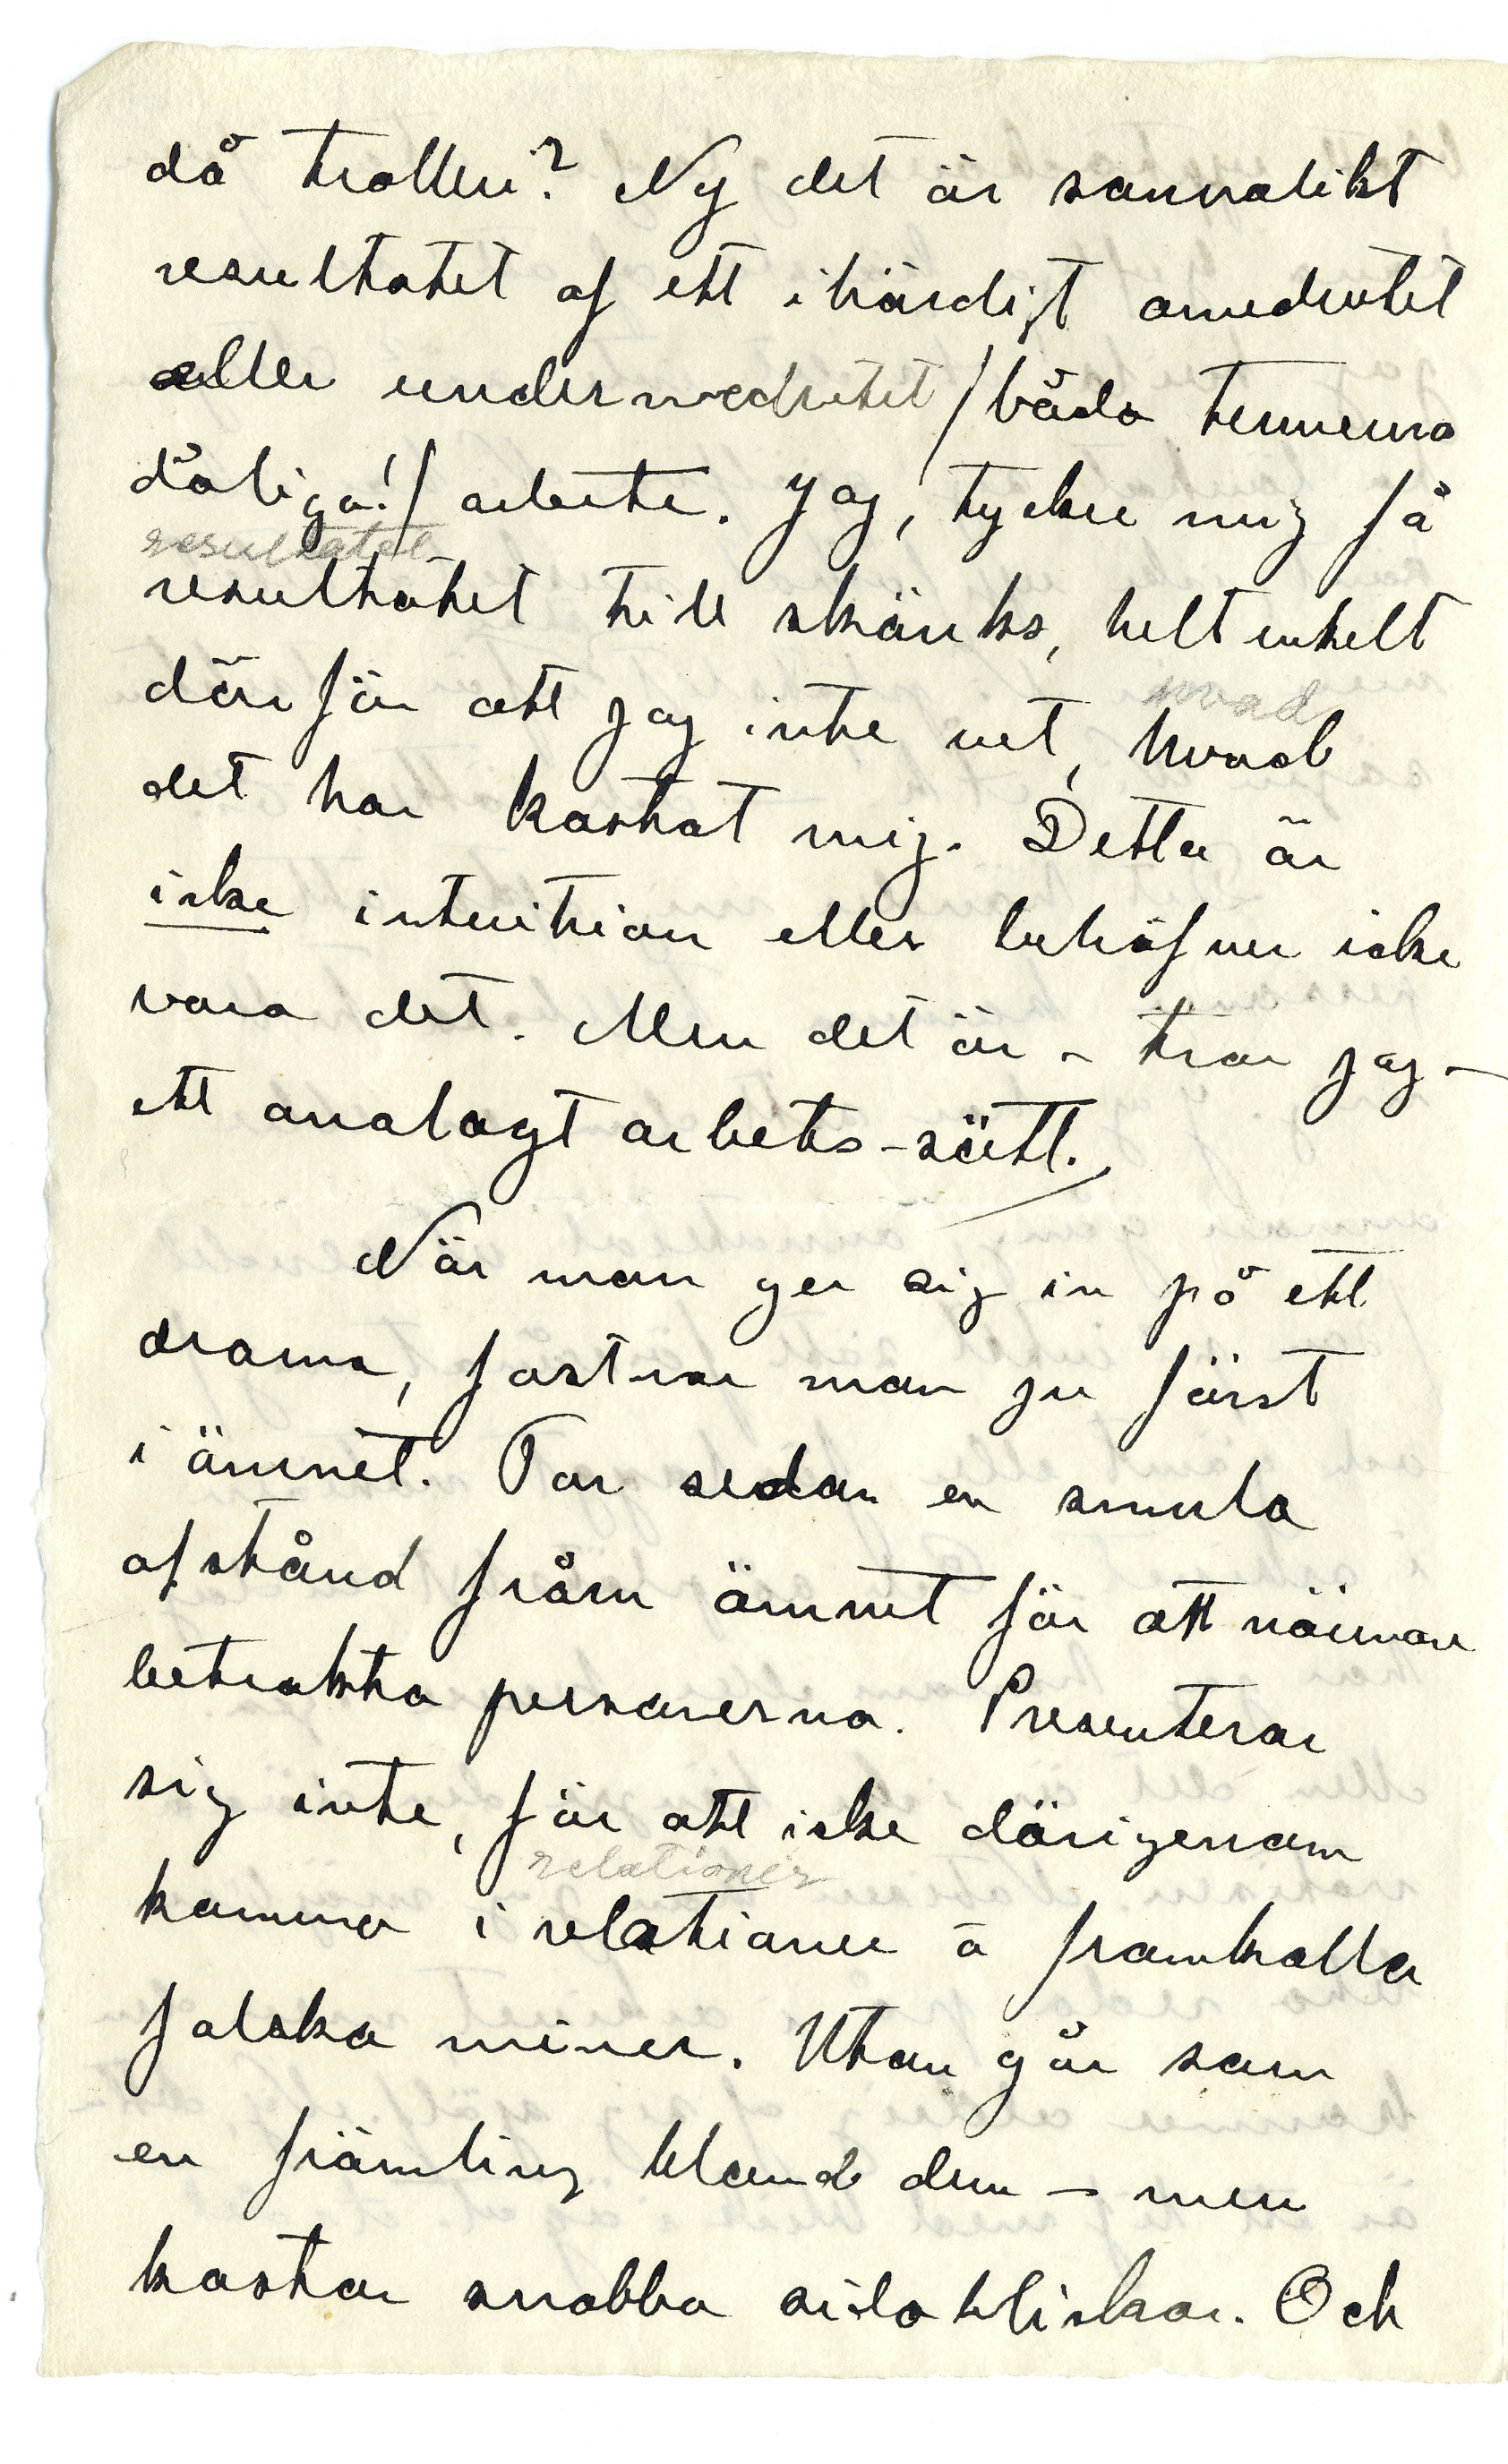 då trolleri? Nej det är sannolikt
resultatet af ett ihärdigt omedvetet
eller undermedvetet /båda termerna
dåliga!/ arbete. Jag, tycker mig få
resultatet
resultatet till skänks, helt enkelt
därför att jag inte vet, hvad
hvad
det har kostat mig. Detta är
icke intuition eller behöfver icke
vara det. Men det är – tror jag –
ett analogt arbets-sätt.
När man ger sig in på ett
drama, fastnar man ju först
i ämnet. Tar sedan en smula
afstånd från ämnet för att närmare
betrakta personerna. Presenterar
sig inte, för att icke därigenom
relationer
komma i relationer o framkalla
falska miner. Utan går som
en främling bland dem – men
kastar snabba sidoblickar. Och